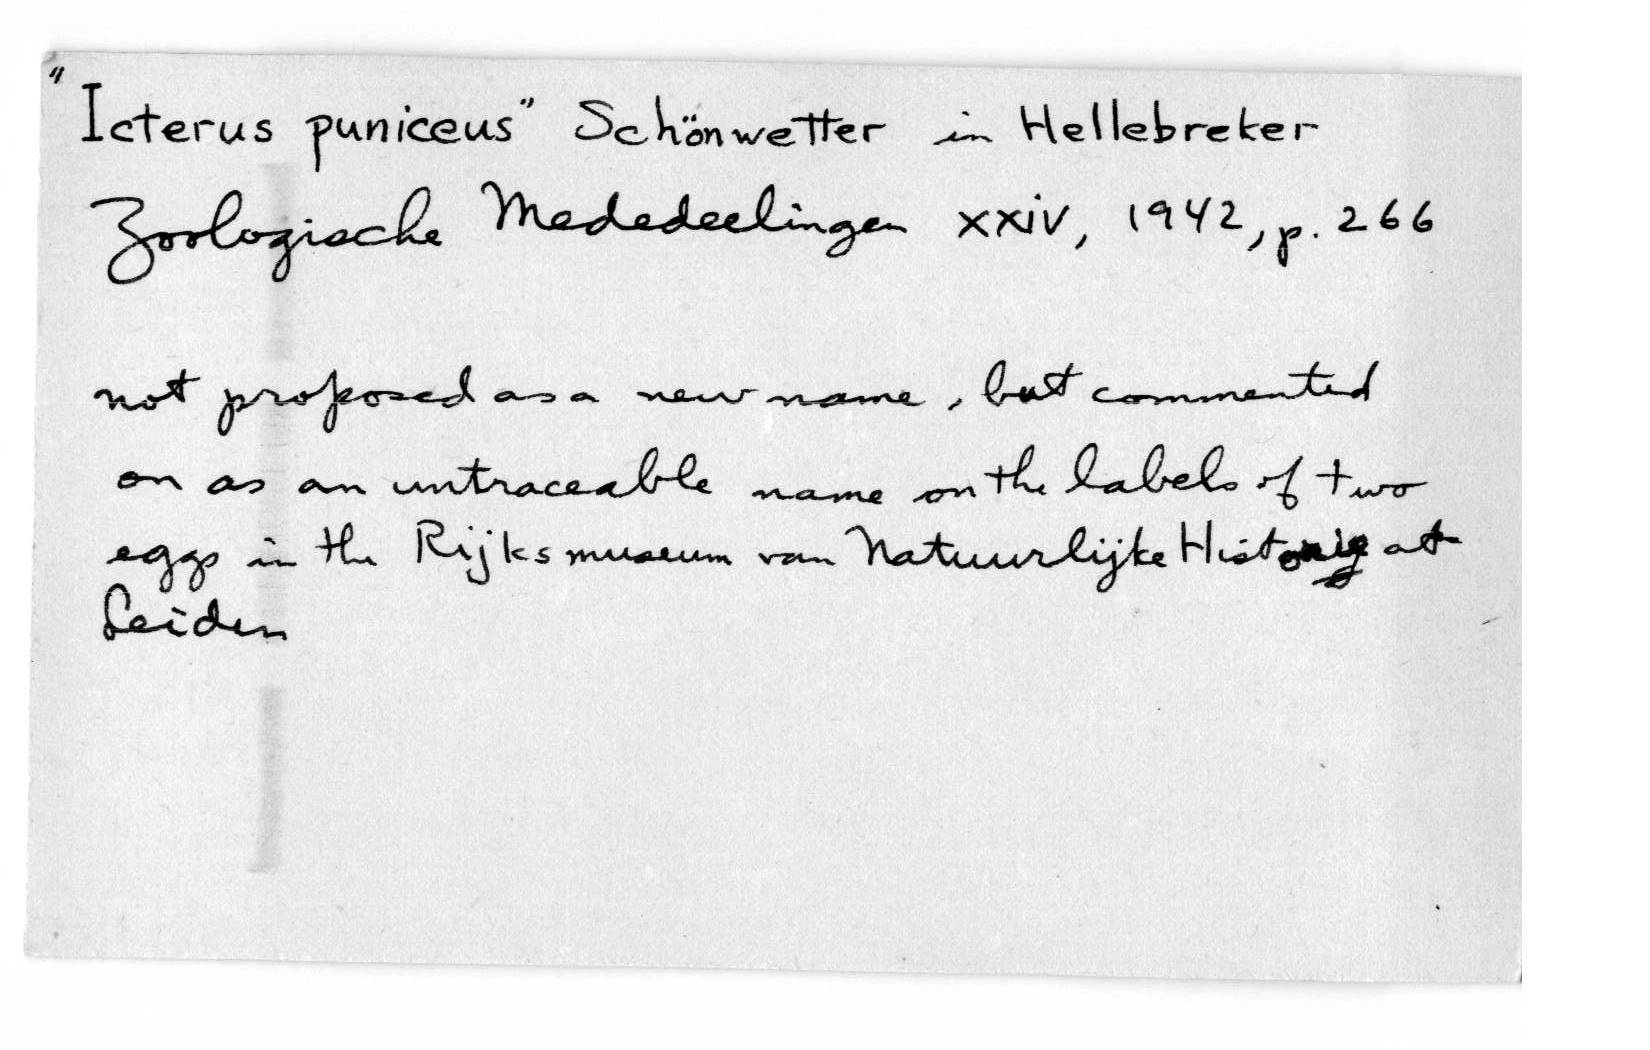 "Icterus puniceus" Schönwetter in Hellebreker
Zoologische Mededeelingen XXIV, 1942, p. 266
not proposed as a new name, but commented
on as an untraceable name on the labels of two
eggs in the Rijksmuseum van Natuurlijke Historie at
Leiden